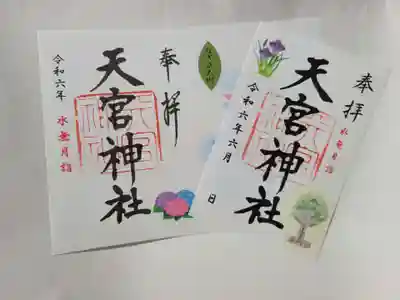 奉拝
天宮神社
令和六年
水無月詣
日
奉拝
水無月詣
天宮神社
令和六年六月